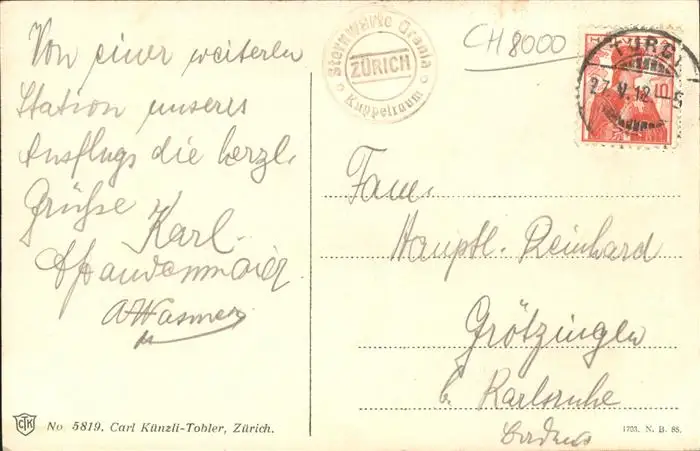 Von einer weiteren
Station unseres
Ausflugs die herzl.
Grüsse Karl.
A. Wasmer
Sternwarte Urania
ZÜRICH
Kuppelraum
CH 8000
HELVETIA
ZÜRICH
27. V. 12. 10
Fam.
Hauptl. Reinhard
Grötzingen
b. Karlsruhe
Baden
CTK
No 5819. Carl Künzli-Tobler, Zürich.
1703. N. B. 88.